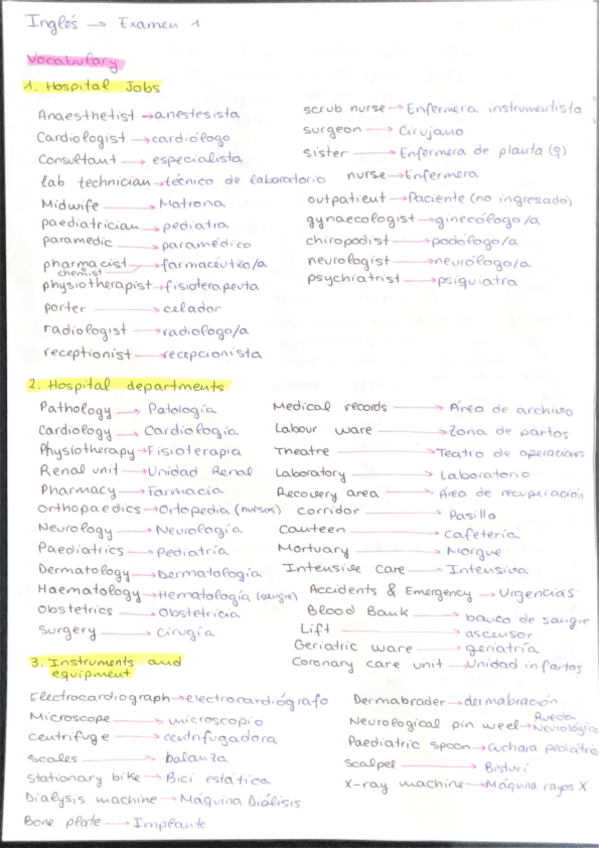 Inglés → Examen 1
Vocabulary
1. Hospital Jobs
Anaesthetist → anestesista
Cardiologist → cardiólogo
Consultant → especialista
lab technician → técnico de laboratorio
Midwife → Matrona
paediatrician → pediatra
paramedic → paramédico
pharmacist → farmacéutico/a
chemist
physiotherapist → fisioterapeuta
porter → celador
radiologist → radiologo/a
receptionist → recepcionista
scrub nurse → Enfermera instrumentista
surgeon → Cirujano
sister → Enfermera de planta (♀)
nurse → Enfermera
outpatient → Paciente (no ingresado)
gynaecologist → ginecólogo/a
chiropodist → podólogo/a
neurologist → neurólogo/a
psychiatrist → psiquiatra
2. Hospital departments
Pathology → Patología
Cardiology → Cardiología
Physiotherapy → Fisioterapia
Renal unit → Unidad Renal
Pharmacy → Farmacia
Orthopaedics → Ortopedia (huesos)
Neurology → Neurología
Paediatrics → Pediatría
Dermatology → Dermatología
Haematology → Hematología (sangre)
Obstetrics → Obstetricia
Surgery → Cirugía
Medical records → Área de archivo
Labour ware → Zona de partos
Theatre → Teatro de operaciones
Laboratory → Laboratorio
Recovery area → Área de recuperación
Corridor → Pasillo
Canteen → Cafetería
Mortuary → Morgue
Intensive care → Intensiva
Accidents & Emergency → Urgencias
Blood Bank → banco de sangre
Lift → ascensor
Geriatric ware → geriatría
Coronary care unit → Unidad infartos
3. Instruments and
equipment
Electrocardiograph → electrocardiógrafo
Microscope → microscopio
Centrifuge → centrifugadora
Scales → balanza
Stationary bike → Bici estática
Dialysis machine → Máquina Diálisis
Bone plate → Implante
Dermabrader → dermabración
Neurological pin weel → Rueda Neurológica
Paediatric spoon → Cuchara pediátric
Scalpel → Bisturí
X-ray machine → Máquina rayos X